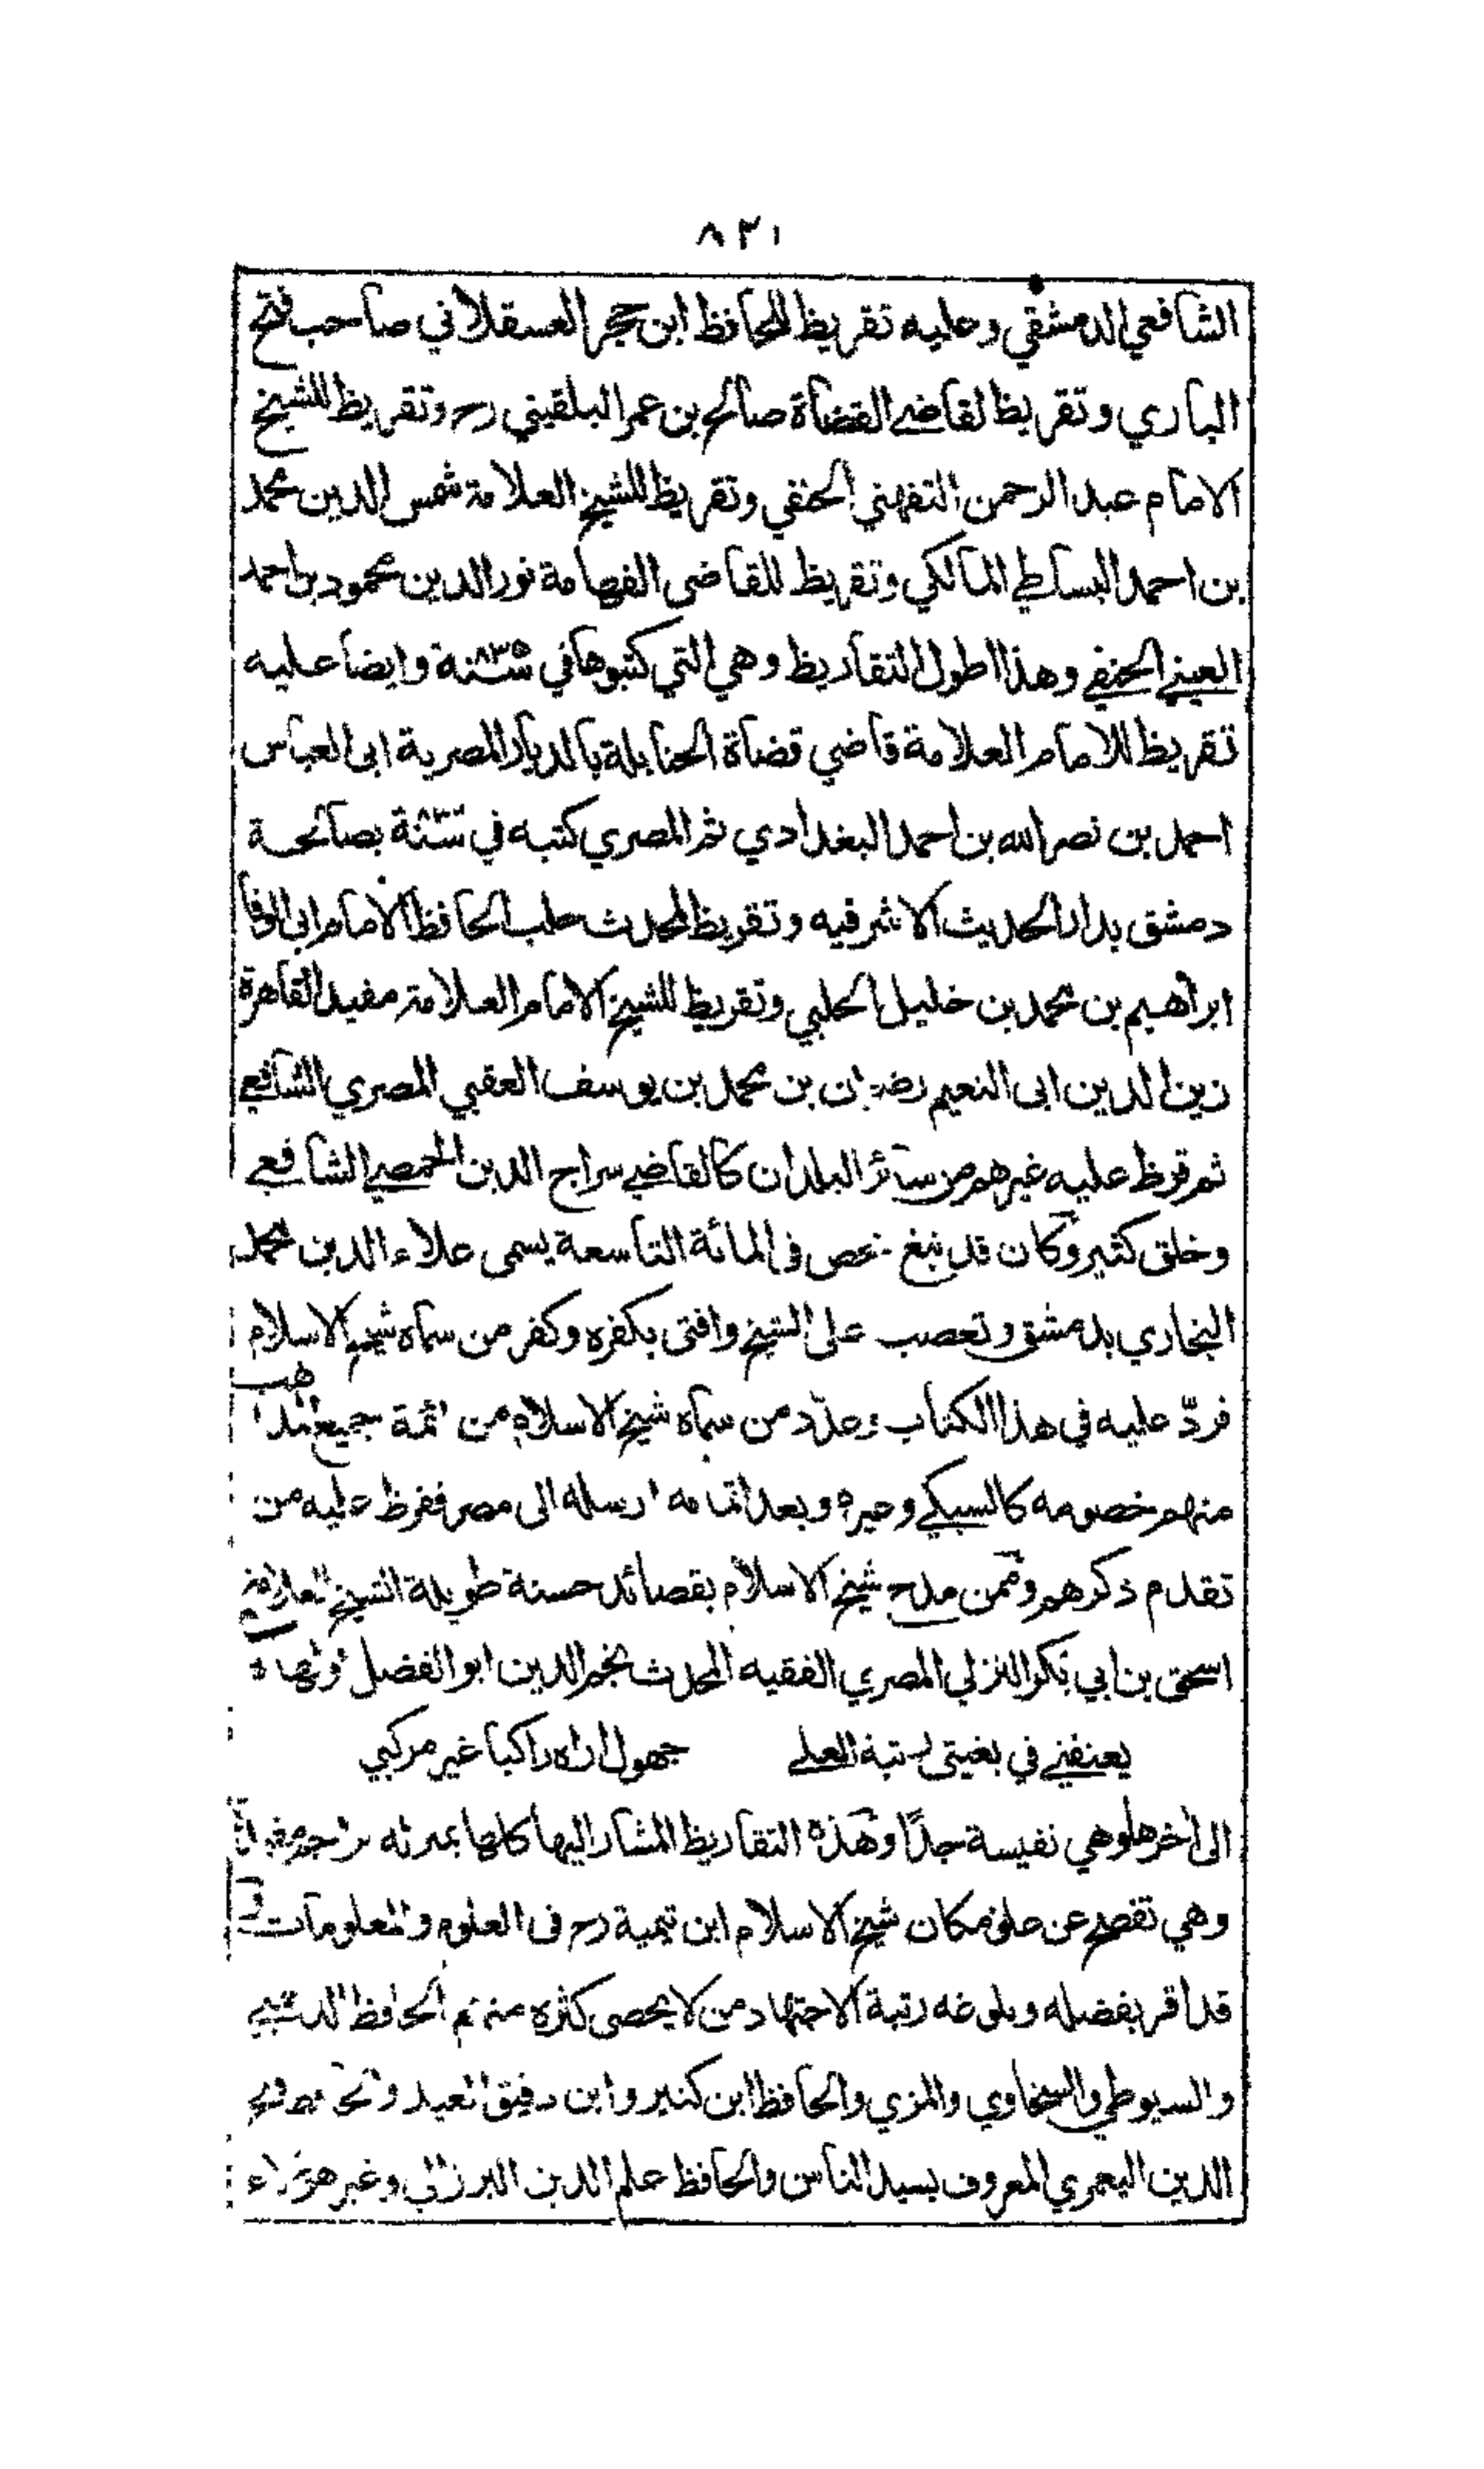 ٨٢١
الشافعي الدمشقي وعليه تقريظ للحافظ ابن حجر العسقلاني صاحب فتح
الباري وتقريظ لقاضي القضاة صالح بن عمر البلقيني رح وتقريظ للشيخ
الامام عبد الرحمن التفهني الحنفي وتقريظ للشيخ العلامة شمس الدين محمد
بن احمد البساطي المالكي وتقريظ للقاضي الفهامة نور الدين محمود بن احمد
العيني الحنفي وهذا اطول التقاريظ وهي التي كتبوها في سنة ٨٣٥ وايضا عليه
تقريظ للامام العلامة قاضي قضاة الحنابلة بالديار المصرية ابى العباس
احمد بن نصر الله بن احمد البغدادي ثم المصري كتبه في سنة بصالحية
دمشق بدار الحديث الاشرفيه وتقريظ لمحدث حلب الحافظ الامام ابى الوفا
ابراهيم بن محمد بن خليل الحلبي وتقريظ للشيخ الامام العلامة مفيد القاهرة
زين الدين ابى النعيم رضوان بن محمد بن يوسف العقبي المصري الشافعي
ثم قرظ عليه غيرهم من سائر البلدان كالقاضي سراج الدين الحمصي الشافعي
وخلق كثير وكان قد نبغ شخص فى المائة التاسعة يسمى علاء الدين محمد
البخاري بدمشق وتعصب على الشيخ وافتى بكفره وكفر من سماه شيخ الاسلام
فردّ عليه في هذا الكتاب وعدّد من سماه شيخ الاسلام من ائمة جميع المذاهب
منهم خصومه كالسبكي وغيره وبعد اتمامه ارسله الى مصر فقرظ عليه من
تقدم ذكرهم وممن مدح شيخ الاسلام بقصائد حسنة طويلة الشيخ العلامة
اسحق بن ابي بكر التركي المصري الفقيه المحدث نجم الدين ابو الفضل اولها ٥
يعنفني في بغيتى رتبة العلي جهول اراه راكبا غير مركبي
الى اخرها وهي نفيسة جدًا وهذه التقاريظ المشار اليها كلها بمنزلة تراجم
وهي تفصح عن علو مكان شيخ الاسلام ابن تيمية رح فى العلوم والمعلومات و
قد اقر بفضله وبلوغه رتبة الاجتهاد من لا يحصى كثره منهم الحافظ الذهبي
والسيوطي والسخاوي والمزي والحافظ ابن كثير وابن دقيق العيد والحافظ فتح
الدين اليعمري المعروف بسيد الناس والحافظ علم الدين البرزالي وغير هؤلاء